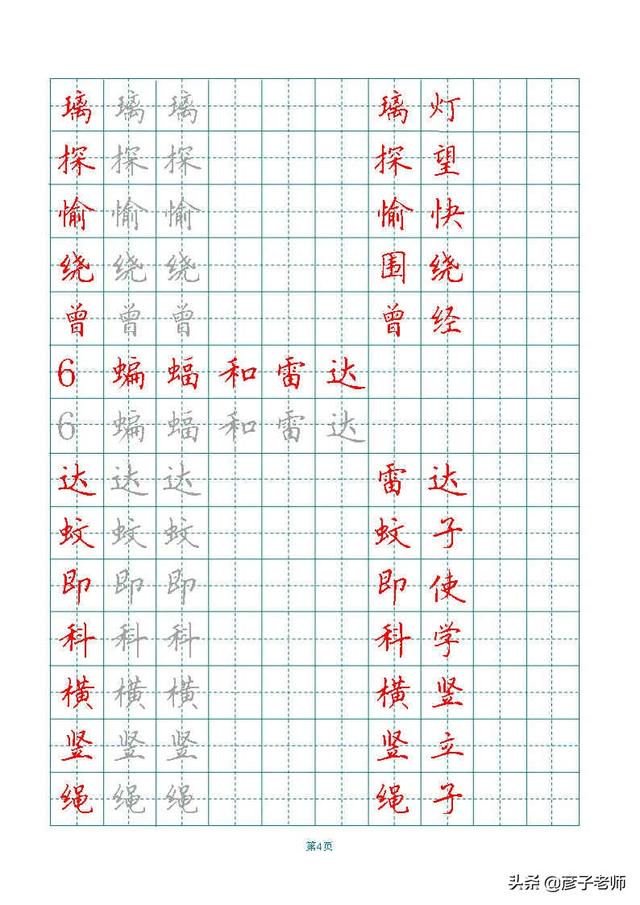 璃 璃 璃 璃 灯
探 探 探 探 望
愉 愉 愉 愉 快
绕 绕 绕 围 绕
曾 曾 曾 曾 经
6 蝙 蝠 和 雷 达
6 蝙 蝠 和 雷 达
达 达 达 雷 达
蚊 蚊 蚊 蚊 子
即 即 即 即 使
科 科 科 科 学
横 横 横 横 竖
竖 竖 竖 竖 立
绳 绳 绳 绳 子
第4页
头条 @彦子老师